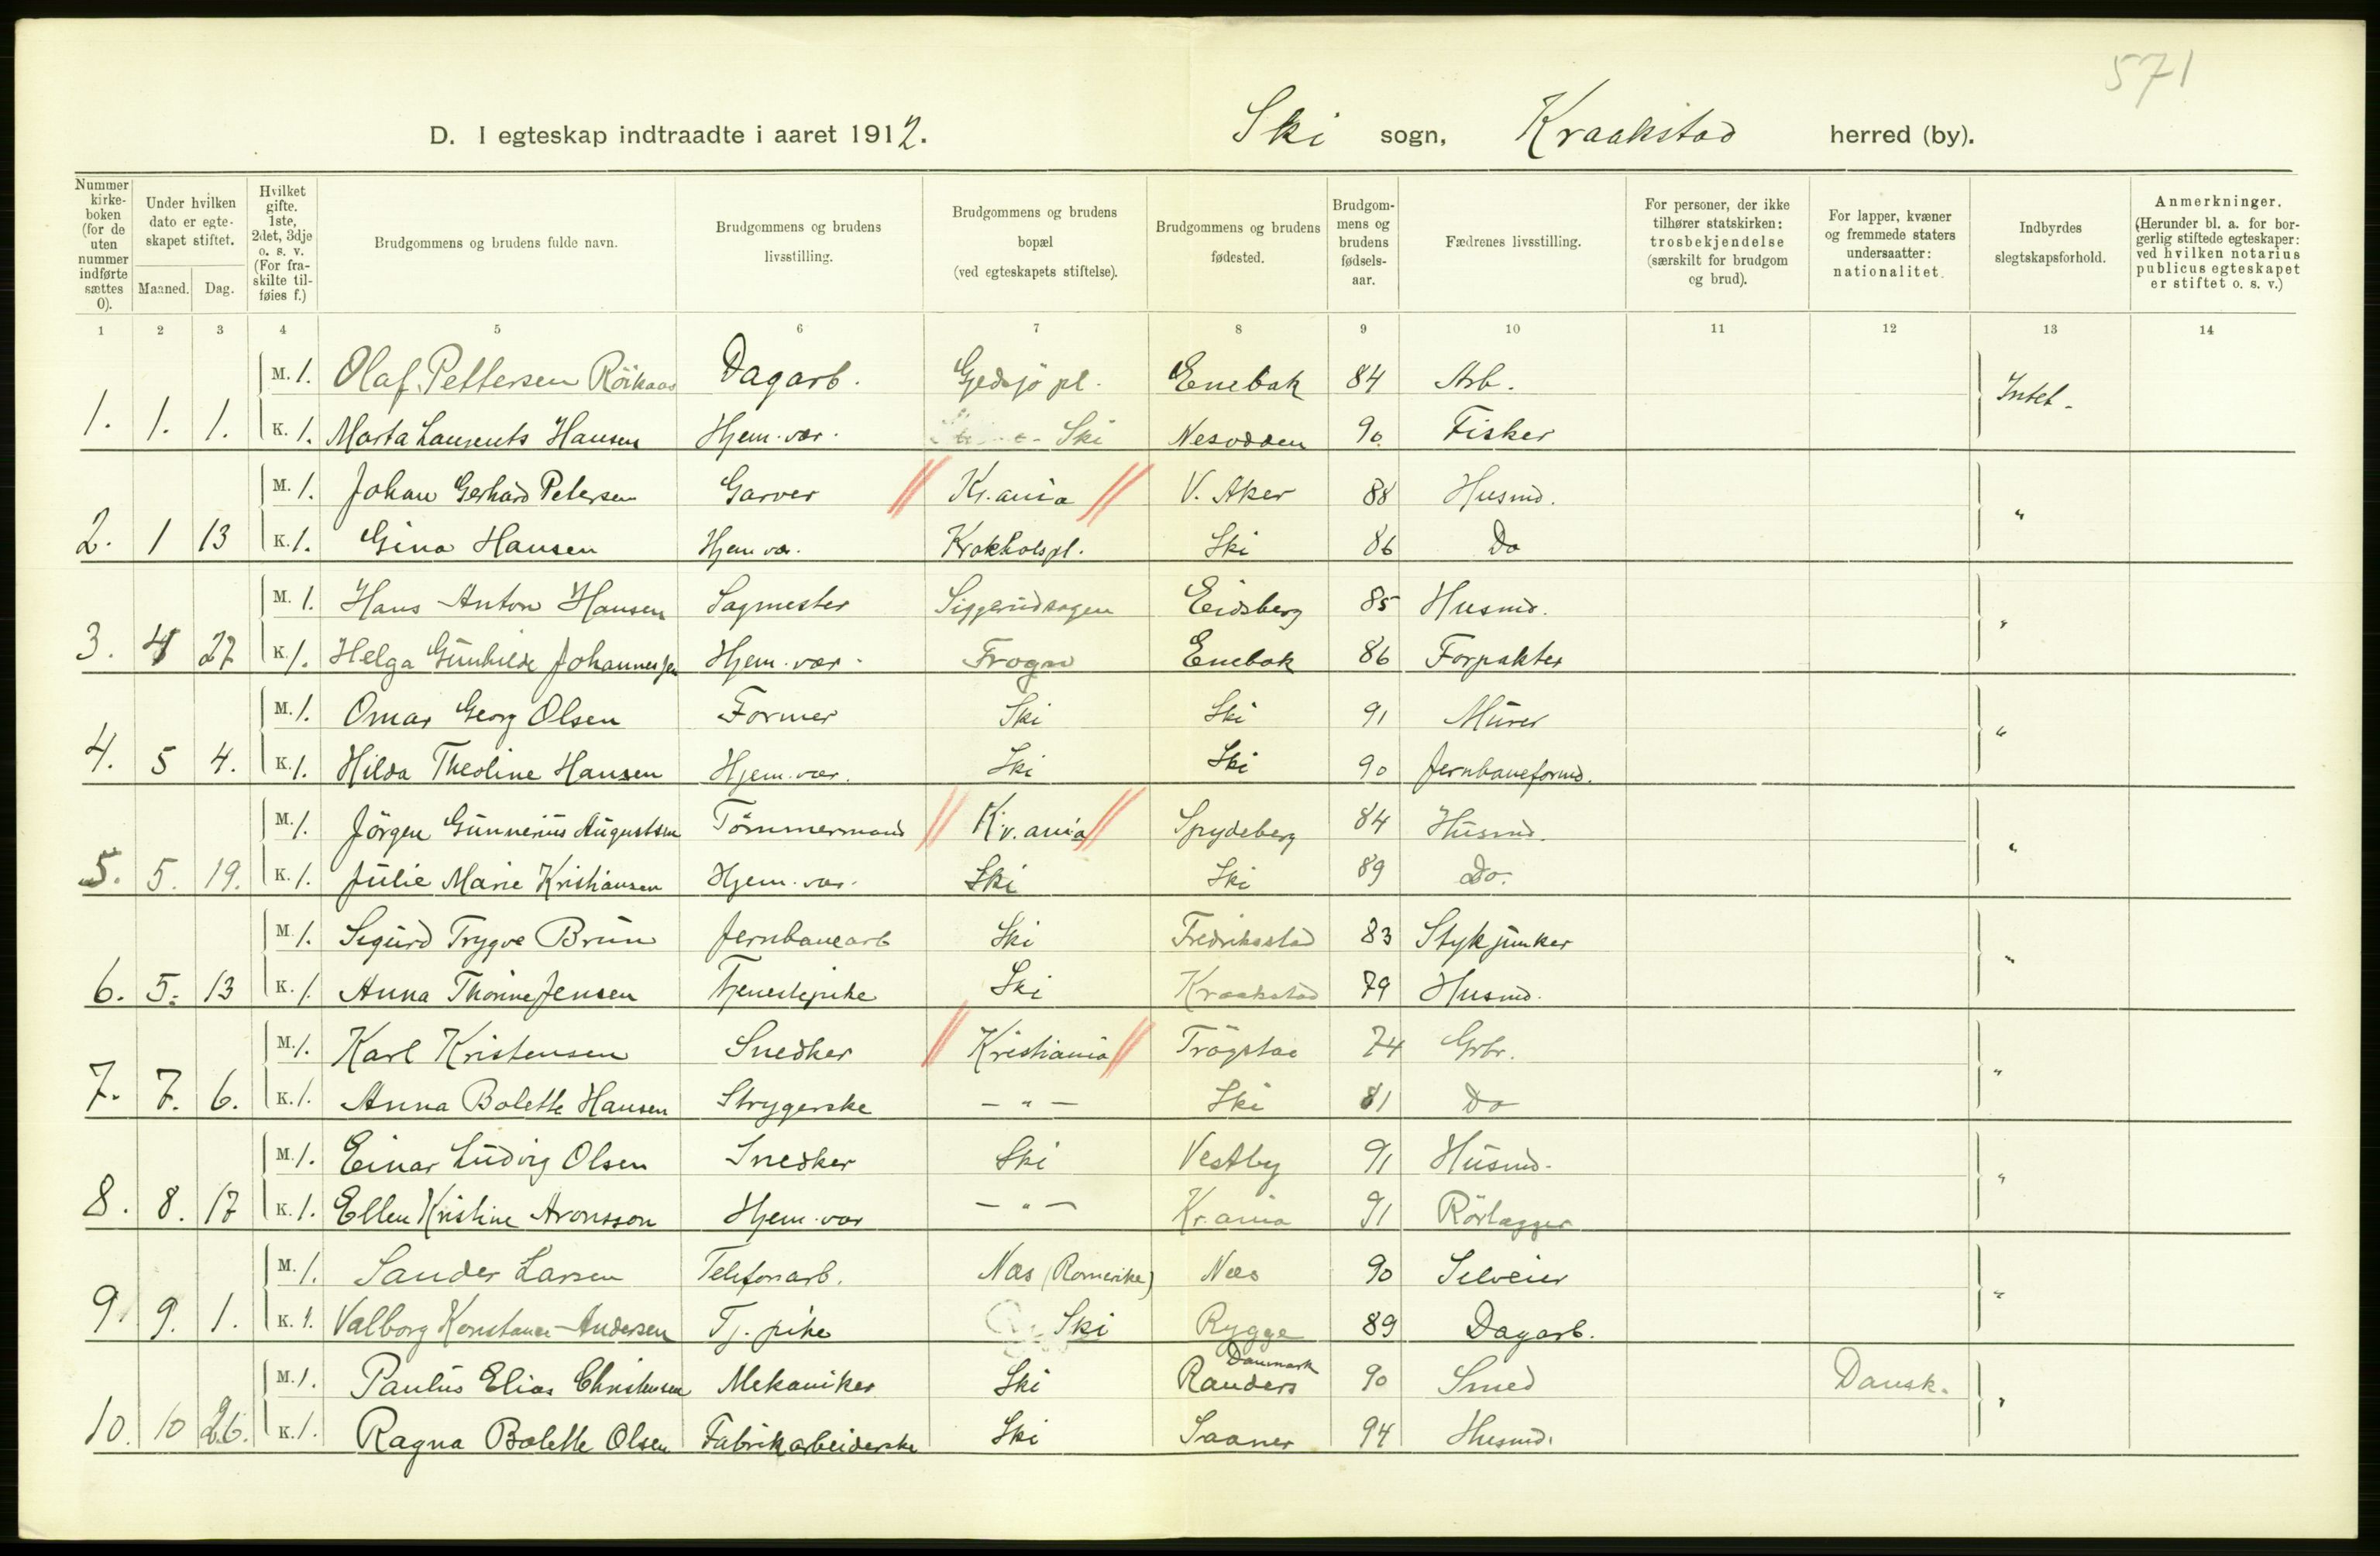 571
D. I egteskap indtraadte i aaret 1912. Ski sogn, Kraakstad herred (by).
Nummer kirke-boken (for de uten nummer indførte sættes 0). Under hvilken dato er egte-skapet stiftet. Maaned. Dag. Hvilket gifte. 1ste, 2det, 3dje o. s. v. (For fra-skilte til-føies f.) Brudgommens og brudens fulde navn. Brudgommens og brudens livsstilling. Brudgommens og brudens bopæl (ved egteskapets stiftelse). Brudgommens og brudens fødested. Brudgom-mens og brudens fødsels-aar. Fædrenes livsstilling. For personer, der ikke tilhører statskirken: trosbekjendelse (særskilt for brudgom og brud). For lapper, kvæner og fremmede staters undersaatter: nationalitet. Indbyrdes slegtskapsforhold. Anmerkninger. (Herunder bl. a. for bor-gerlig stiftede egteskaper: ved hvilken notarius publicus egteskapet er stiftet o. s. v.)
1 2 3 4 5 6 7 8 9 10 11 12 13 14
M. 1. Olaf Pettersen Röikaas Dagarb. Gjedsjö pl. Enebak 84 Arb. Intet.
1. 1. 1. K. 1. Marta Laurents Hansen Hjem. vær. Ski Nesodden 90. Fisker
M. 1. Johan Gerhard Petersen Garver Kr.ania V. Aker 88 Husmd. "
2. 1 13 K. 1. Gina Hansen Hjem vær. Krakholspl. Ski 86 Do
M. 1. Hans Anton Hansen Sagmester Siggerudsagen Eidsberg 85 Husmd. "
3. 4 27 K. 1. Helga Gunhilde Johannessen Hjem. vær. Frogn Enebak 86 Forpakter
M. 1. Omar Georg Olsen Former Ski Ski 91 Murer "
4. 5 4. K. 1. Hilda Theoline Hansen Hjem. vær. Ski Ski 90 Jernbaneformd.
M. 1. Jörgen Gunnerius Augustsen Tömmermand Kr.ania Spydeberg 84 Husmd. "
5. 5. 19. K. 1. Julie Marie Kristiansen Hjem. vær. Ski Ski 89 Do.
M. 1. Sigurd Trygve Brun Jernbanearb Ski Fredriksstad 83 Stykjunker "
6. 5. 13 K. 1. Anna Thorine Jensen Tjenestepike Ski Kraakstad 79 Husmd.
M. 1. Karl Kristensen Snedker Kristiania Trögstad 74 Grbr. "
7. 7. 6. K. 1. Anna Bolette Hansen Strygerske — " — Ski 81 Do
M. 1. Einar Ludvig Olsen Snedker Ski Vestby 91 Husmd. "
8. 8. 17 K. 1. Ellen Kristine Aronsson Hjem. vær — " — Kr.ania 91 Rörlægger
M. 1. Sander Larsen Telefonarb. Næs (Romerike) Næs 90 Selveier "
9. 9. 1. K. 1. Valborg Konstance Andersen Tj. pike Ski Rygge 89 Dagarb.
M. 1. Paulus Elias Christensen Mekaniker Ski Randers Danmark 90 Smed Dansk. "
10. 10 26. K. 1. Ragna Bolette Olsen Fabrikarbeiderske Ski Saaner 94 Husmd.